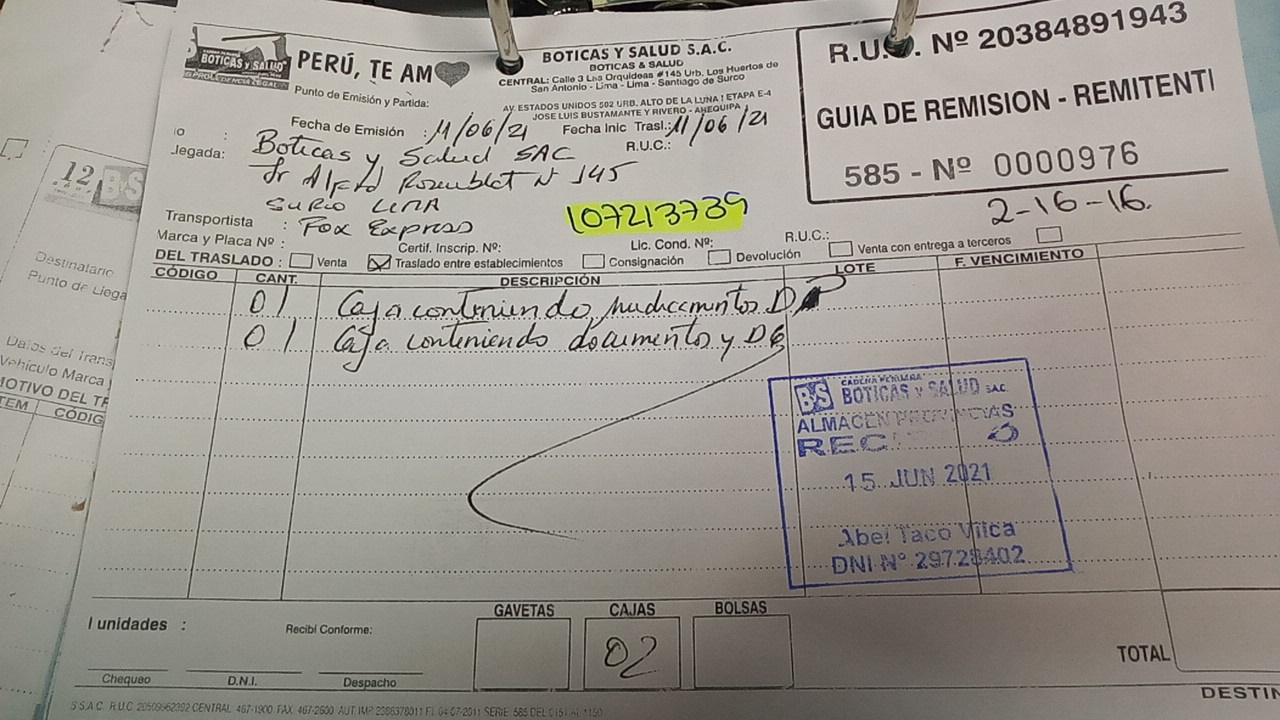 BOTICAS Y SALUD
PROCEDENCIA LEGAL
PERÚ, TE AM
BOTICAS Y SALUD S.A.C.
BOTICAS & SALUD
CENTRAL: Calle 3 Las Orquideas #145 Urb. Los Huertos de
San Antonio - Lima - Lima - Santiago de Surco
Punto de Emisión y Partida:
AV. ESTADOS UNIDOS 502 URB. ALTO DE LA LUNA I ETAPA E-4
JOSE LUIS BUSTAMANTE Y RIVERO - AREQUIPA
R.U.C. Nº 20384891943
GUIA DE REMISION - REMITENT
585 - Nº 0000976
Fecha de Emisión : 11/06/21 Fecha Inic Trasl.: 11/06/21
Boticas y Salud SAC R.U.C.:
legada: Jr Alfred Rosenblat N 145
Surco Lima
2-16-16.
Transportista : Fox Express 107213739
Marca y Placa Nº : Certif. Inscrip. Nº: Lic. Cond. Nº: R.U.C.:
DEL TRASLADO : Venta Traslado entre establecimientos Consignación Devolución Venta con entrega a terceros
CÓDIGO CANT. DESCRIPCIÓN LOTE F. VENCIMIENTO
01 Caja conteniendo medicamentos
01 Caja conteniendo documentos y
BS CADENA PERUANA
BOTICAS Y SALUD SAC
ALMACEN PROVINCIAS
15 JUN 2021
Abel Taco Vilca
DNI Nº 29728402
GAVETAS CAJAS BOLSAS
02
l unidades : Recibi Conforme:
Chequeo D.N.I. Despacho
TOTAL
DESTIN
12 BS
Destinatario
Punto de Llega
Datos del Trans
Vehículo Marca
MOTIVO DEL TR
TEM CÓDIG